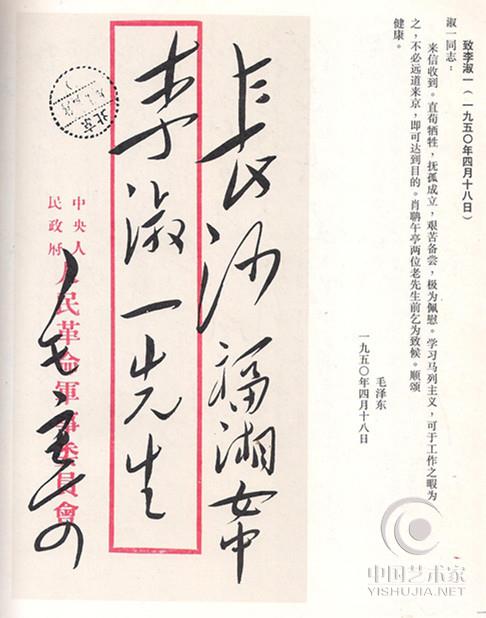 致李淑一(一九五〇年四月十八日)
淑一同志:
来信收到。直荀牺牲,抚孤成立,艰苦备尝,极为佩慰。学习马列主义,可于工作之暇为
之,不必远道来京,即可达到目的。肖聃午亭两位老先生前乞为致候。顺颂
健康。
毛泽东
一九五〇年四月十八日
長沙福湘女中
李淑一先生
中央人
民政府
人民革命軍事委員會
北京
中国艺术家
YISHUJIA.NET